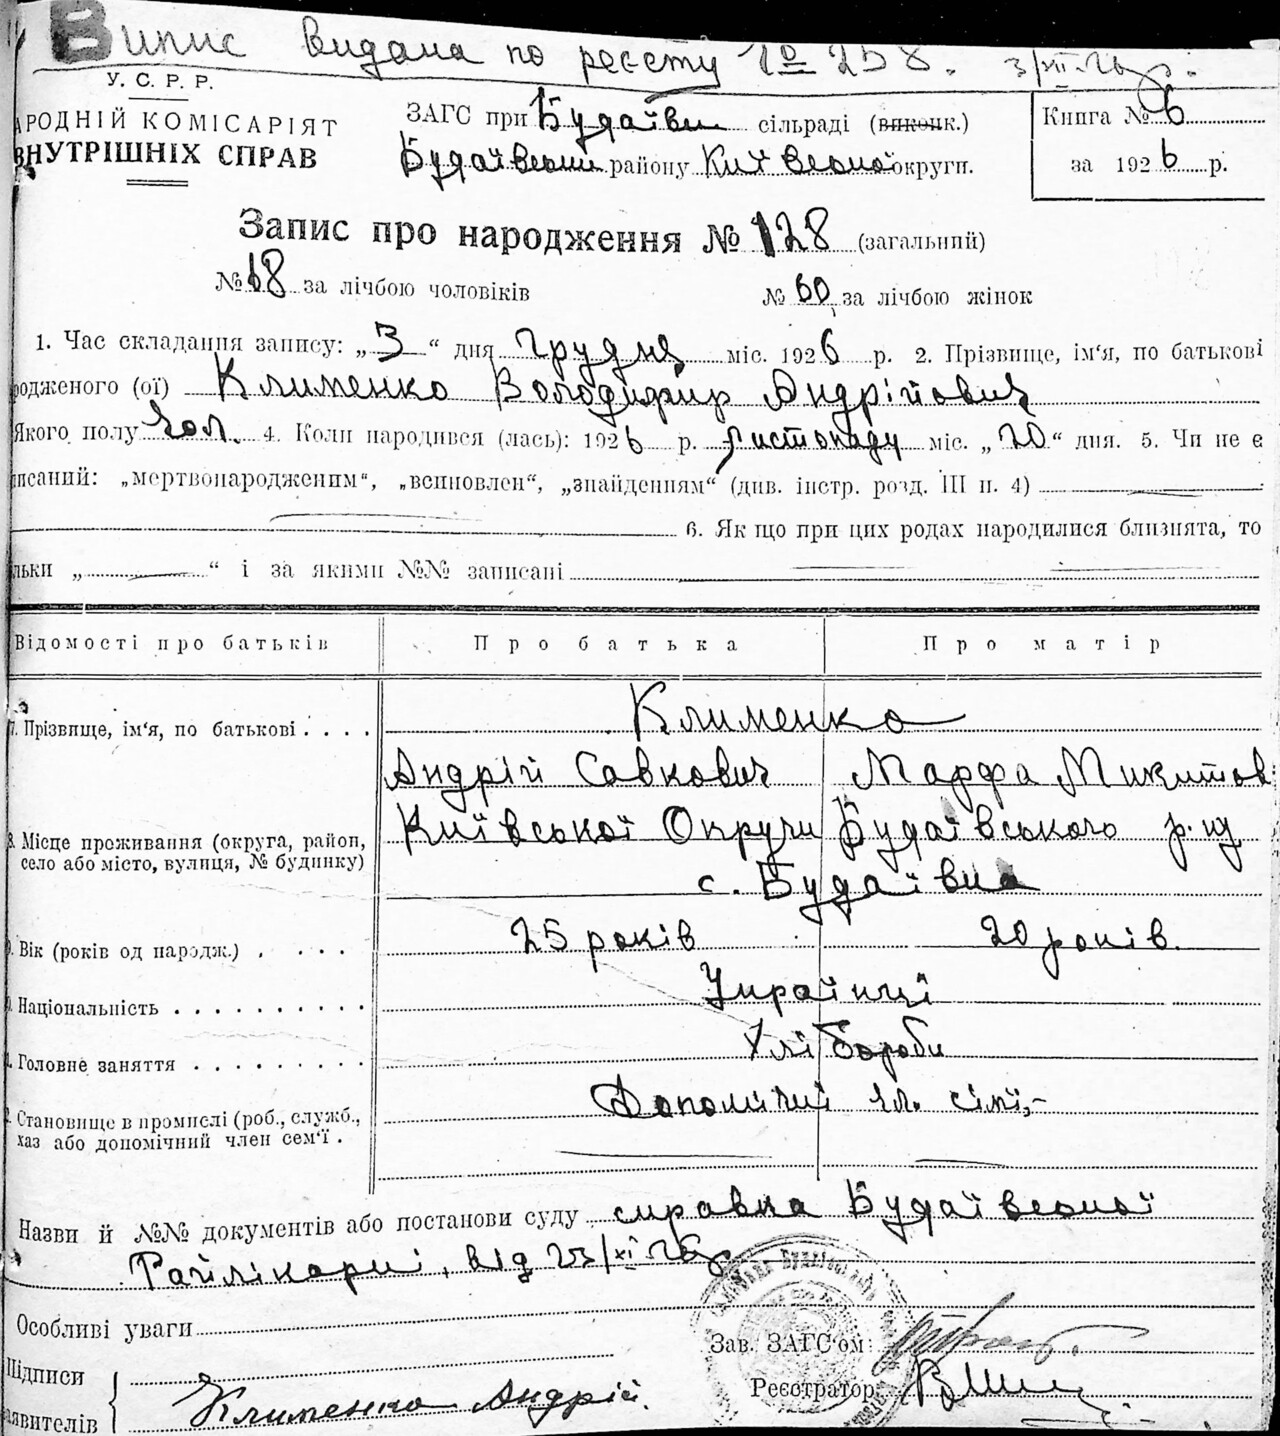 Випис видана по реєсту № 258. 3/XII-26 р.
У. С. Р. Р.
АРОДНІЙ КОМІСАРІЯТ
ВНУТРІШНІХ СПРАВ
ЗАГС при Будаївськ сільраді (виконк.)
Будаївськ району Київської округи.
Книга № 6
за 1926 р.
Запис про народження № 128 (загальний)
№ 68 за лічбою чоловіків № 60 за лічбою жінок
1. Час складання запису: „3“ дня Грудня міс. 1926 р. 2. Прізвище, ім'я, по батькові
родженого (ої) Клименко Володимир Андрійович
Якого полу чол. 4. Коли народився (лась): 1926 р. листопаду міс. „20“ дня. 5. Чи не є
писаний: „мертвонародженим“, „всиновлен“, „знайденням“ (див. інстр. розд. III п. 4)
6. Як що при цих родах народилися близнята, то
льки „ “ і за якими №№ записані
Відомості про батьків Про батька Про матір
7. Прізвище, ім'я, по батькові . . . . Клименко
Андрій Савкович Марфа Микитов
8. Місце проживання (округа, район, село або місто, вулиця, № будинку) Київської Округи Будаївського р-ну
с. Будаївка
9. Вік (років од народж.) . . . . 25 років 20 років.
Національність . . . . . . . . . . Українці
Головне заняття . . . . . . . . . Хлібороби
Становище в промислі (роб., служб., хаз або допомічний член сем'ї . Допомічні чл. сімї,-
Назви й №№ документів або постанови суду справка Будаївської
Райлікарні, від 23/XI 26 р
Особливі уваги
Зав. ЗАГС'ом:
Підписи
Реєстратор
аявителів Клименко Андрій.